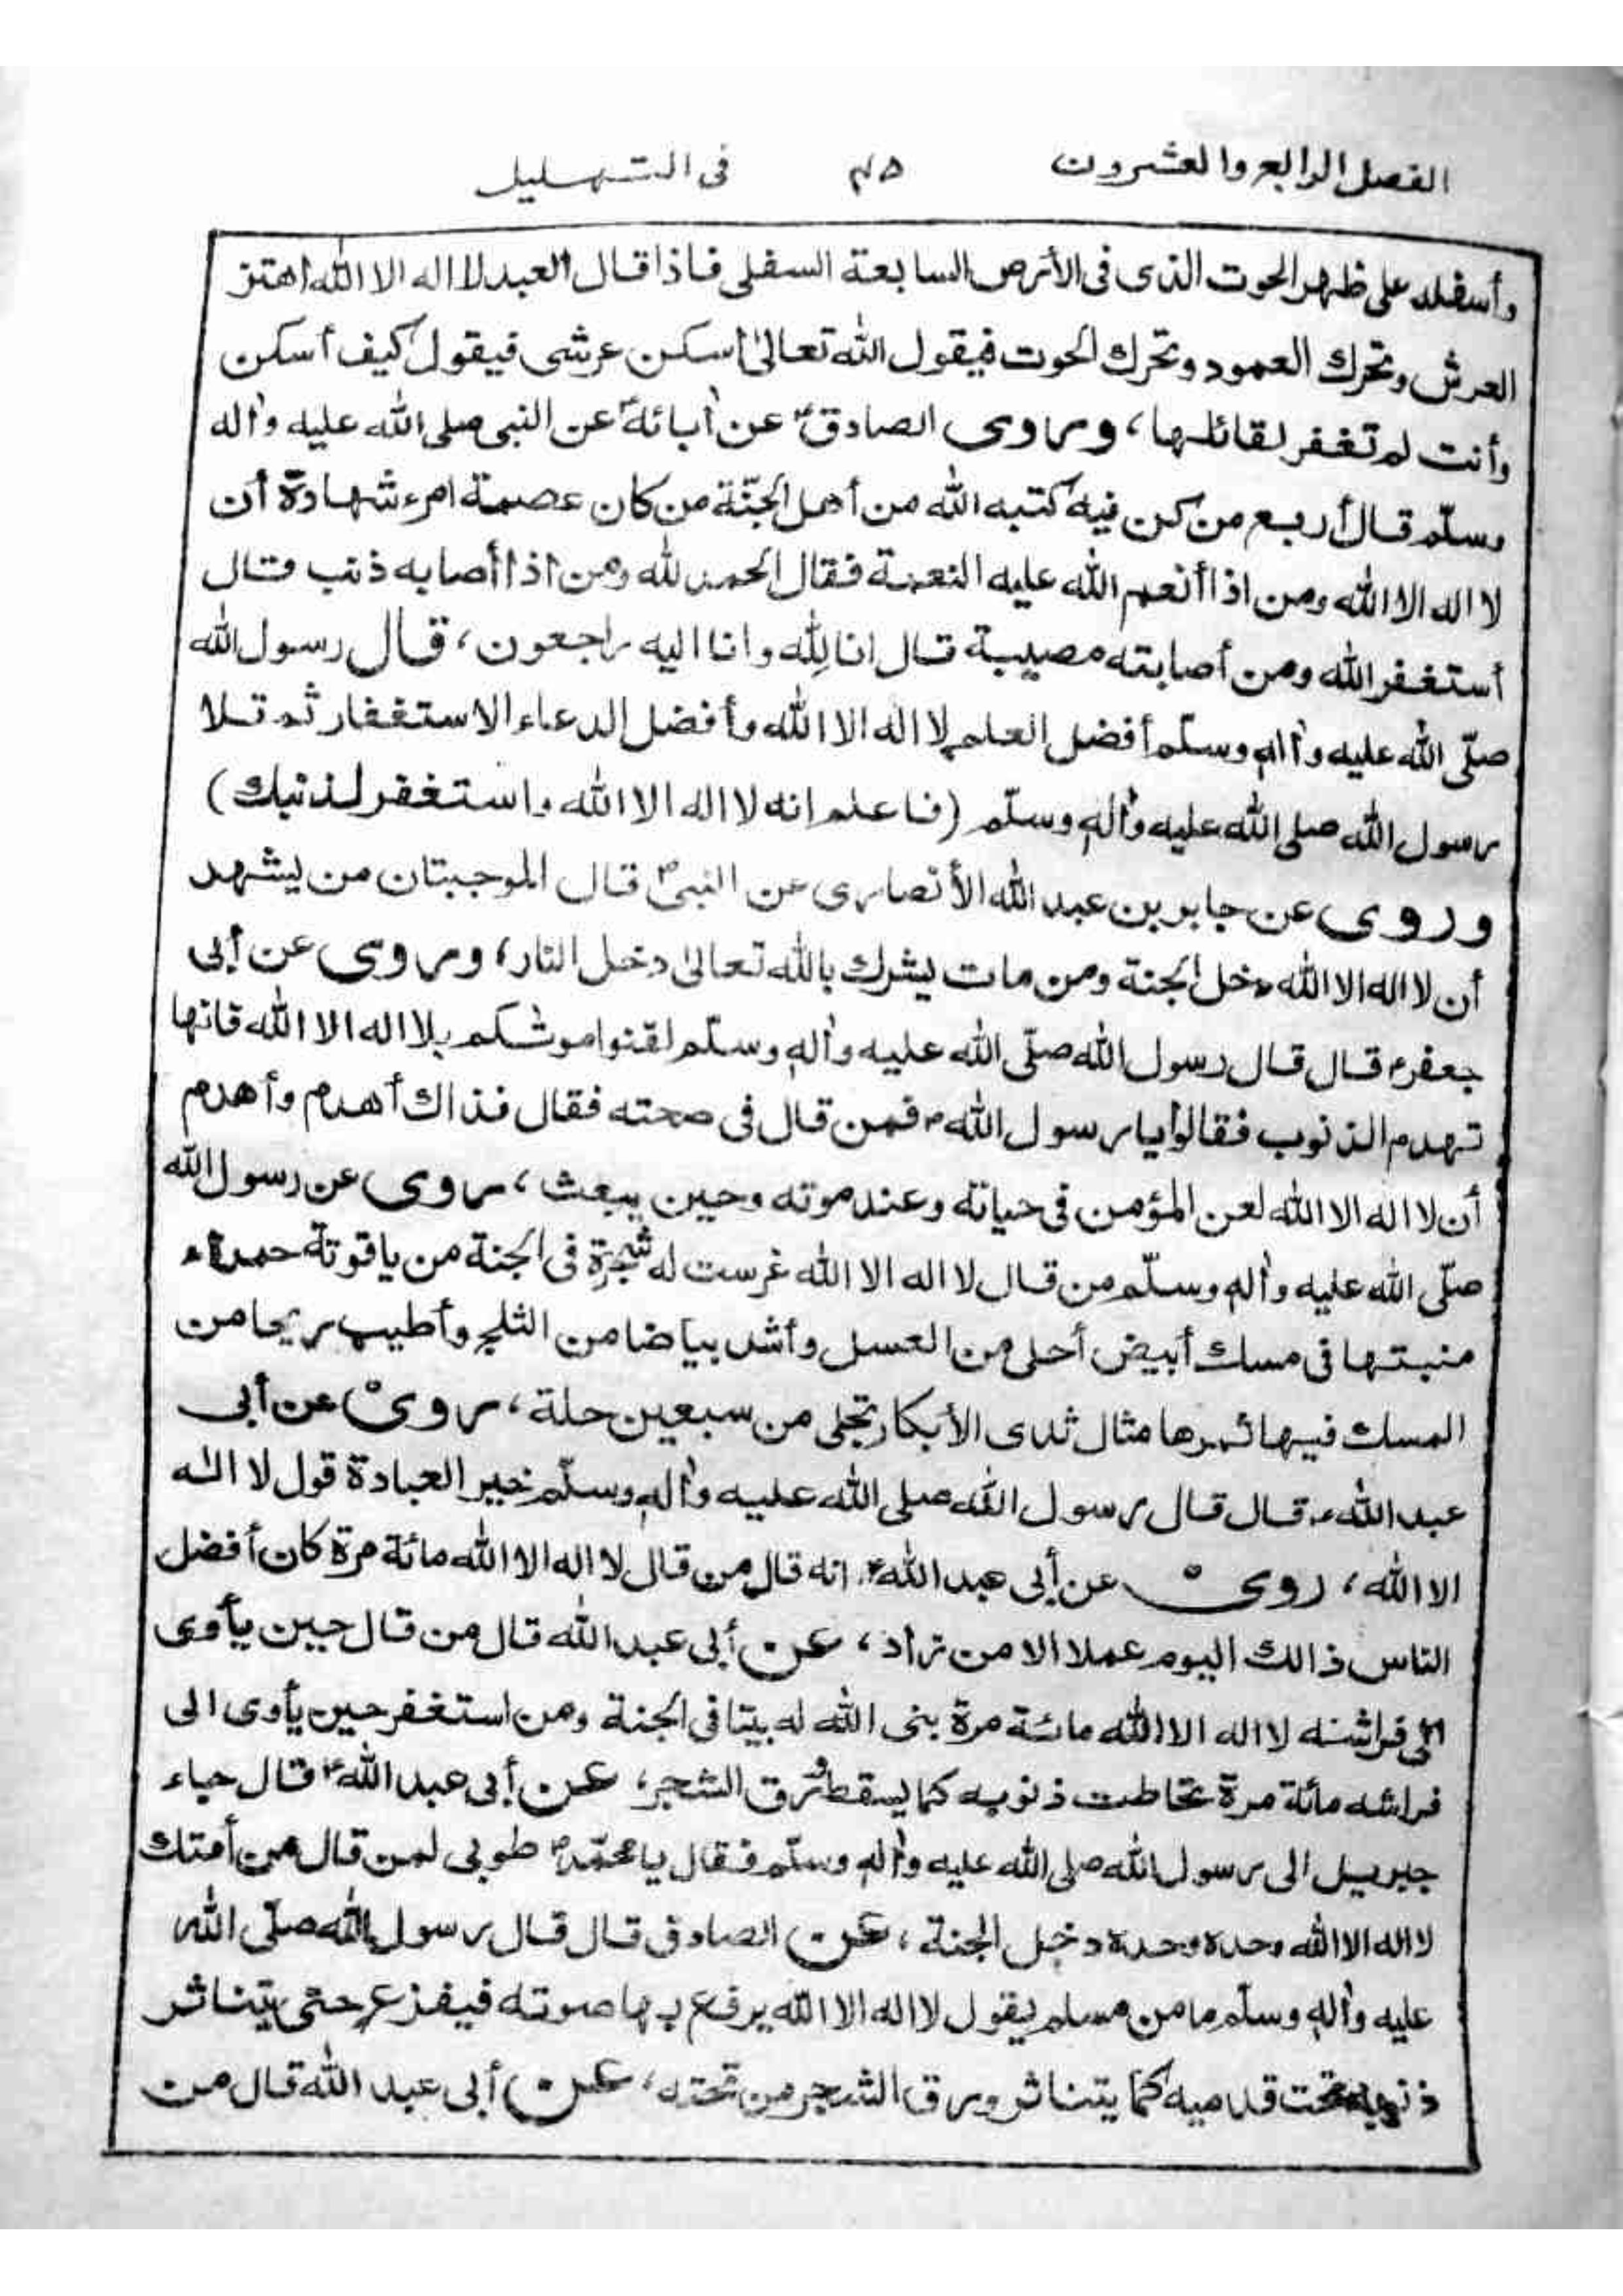 الفصل الرابع والعشرون ٤٥ فى التهليل
وأسفله على ظهر الحوت الذى فى الأرض السابعة السفلى فاذا قال العبد لا اله الا الله اهتز
العرش وتحرك العمود وتحرك الحوت فيقول الله تعالى اسكن عرشى فيقول كيف أسكن
وأنت لم تغفر لقائلها، وروى الصادق عن أبائه عن النبى صلى الله عليه وأله
وسلّم قال أربع من كن فيه كتبه الله من أهل الجنّة من كان عصمة امرء شهادة أن
لا اله الا الله ومن اذا أنعم الله عليه النعمة فقال الحمد لله ومن اذا أصابه ذنب قال
أستغفر الله ومن أصابته مصيبة قال انا لله وانا اليه راجعون، قال رسول الله
صلّى الله عليه وأله وسلّم أفضل العلم لا اله الا الله وأفضل الدعاء الاستغفار ثم تلا
رسول الله صلى الله عليه وأله وسلّم (فاعلم انه لا اله الا الله واستغفر لذنبك)
وروى عن جابر بن عبد الله الأنصارى عن النبىؐ قال الموجبتان من يشهد
أن لا اله الا الله دخل الجنة ومن مات يشرك بالله تعالى دخل النار، وروى عن أبى
جعفرؑ قال قال رسول الله صلّى الله عليه وأله وسلّم لقنوا موتٰكم بلا اله الا الله فانها
تهدم الذنوب فقالوا يا رسول الله فمن قال فى صحته فقال فذاك أهدم وأهدم
أن لا اله الا الله لعن المؤمن فى حياته وعند موته وحين يبعث، روى عن رسول الله
صلّى الله عليه وأله وسلّم من قال لا اله الا الله غرست له شجرة فى الجنة من ياقوتة حمراء
منبتها فى مسك أبيض أحلى من العسل وأشد بياضا من الثلج وأطيب ريحا من
المسك فيها ثمرها مثال ثدى الأبكار تجلى من سبعين حلة، روى عن أبى
عبد الله قال قال رسول الله صلى الله عليه وأله وسلّم خير العبادة قول لا اله
الا الله، روى عن أبى عبد الله انه قال من قال لا اله الا الله مائة مرة كان أفضل
الناس ذالك اليوم عملا الا من زاد، عن أبى عبد الله قال من قال حين يأوى
الى فراشه لا اله الا الله مائة مرة بنى الله له بيتا فى الجنة ومن استغفر حين يأوى الى
فراشه مائة مرة تحاطت ذنوبه كما يسقط ورق الشجر، عن أبى عبد الله قال جاء
جبريل الى رسول الله صلى الله عليه وأله وسلّم فقال يا محمّد طوبى لمن قال من أمتك
لا اله الا الله وحده وحده دخل الجنة، عن الصادق قال قال رسول الله صلّى الله
عليه وأله وسلّم ما من مسلم يقول لا اله الا الله يرفع بها صوته فيفزع حتى يتناثر
ذنوبه تحت قدميه كما يتناثر ورق الشجر من تحته، عن أبى عبد الله قال من